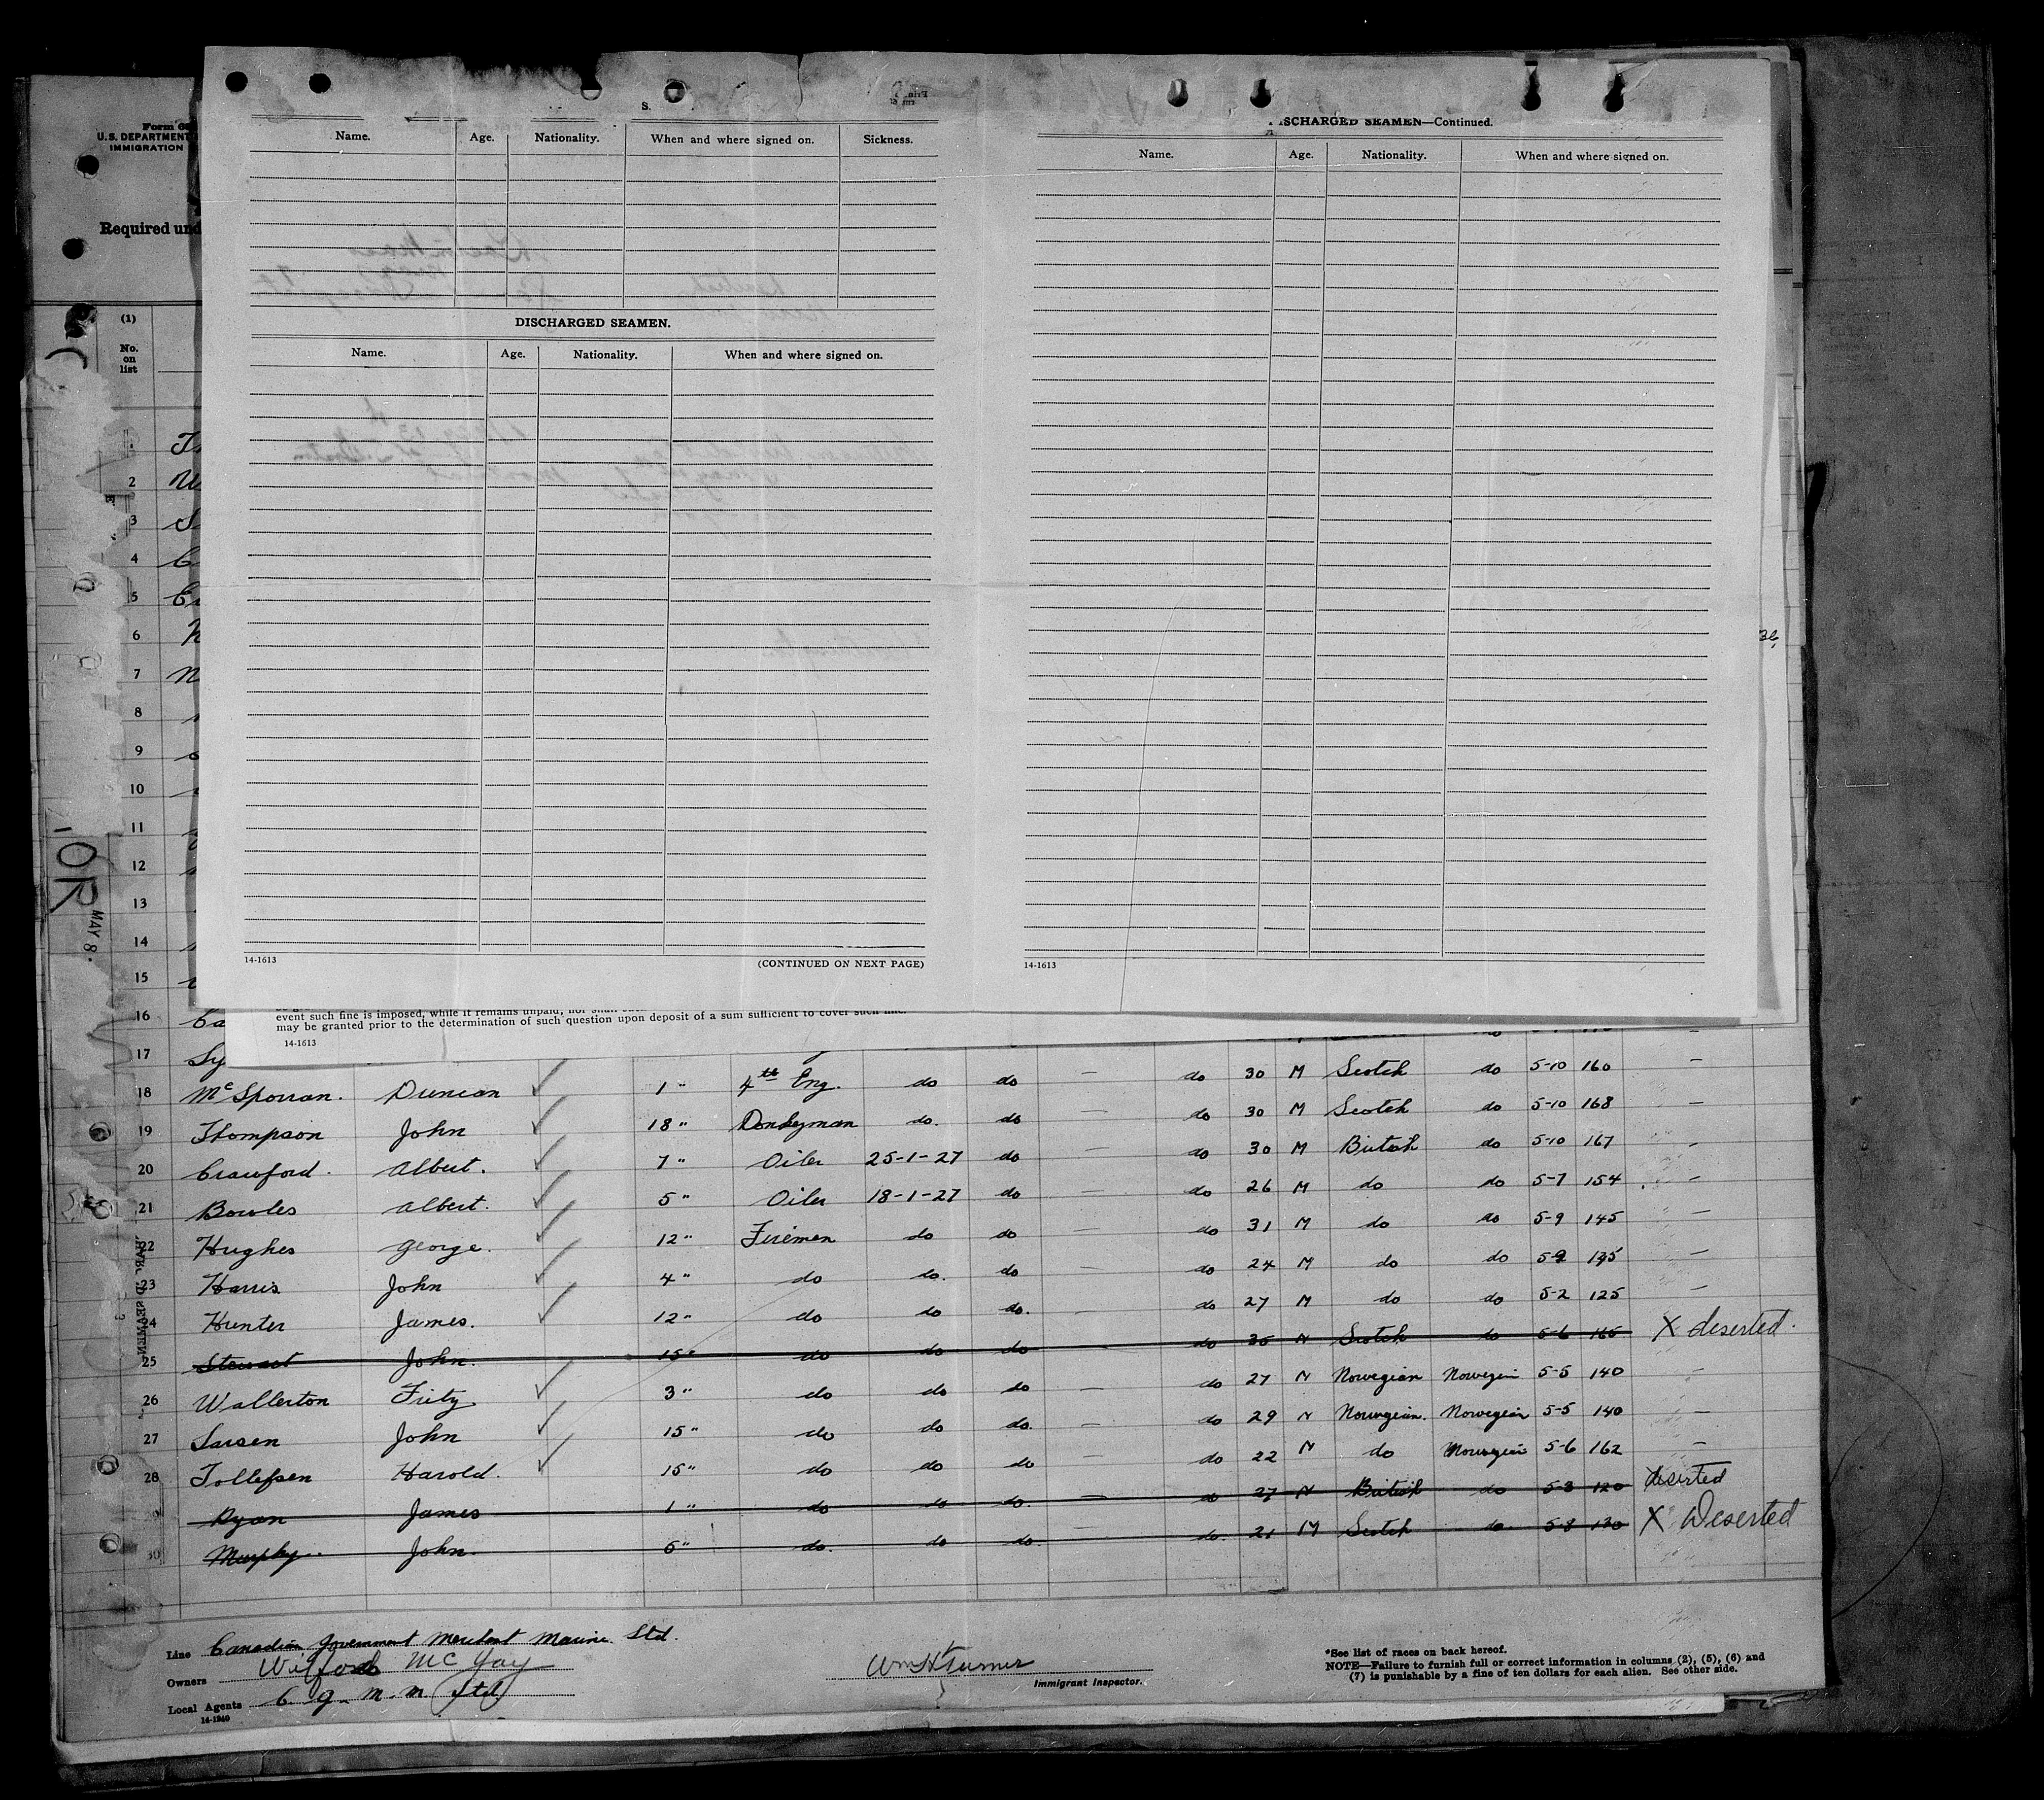 Form 68
U.S. DEPARTMENT
IMMIGRATION
Required und
(1)
No.
on
list
S.
Name. Age. Nationality. When and where signed on. Sickness.
DISCHARGED SEAMEN.
Name. Age. Nationality. When and where signed on.
14-1613 (CONTINUED ON NEXT PAGE)
DISCHARGED SEAMEN—Continued.
Name. Age. Nationality. When and where signed on.
14-1613
36
MAY 8.
event such fine is imposed, while it remains unpaid, nor shall
may be granted prior to the determination of such question upon deposit of a sum sufficient to cover such fine.
14-1613
1
2
3 S
4 C
5
6
7
8
9
10
11
12
13
14
15
16 Ca
17 Sy
18 McSporran. Duncan ✓ 1 " 4th Eng. do do — do 30 M Scotch do 5-10 160 —
19 Thompson John ✓ 18 " Donkeyman do. do — do 30 M Scotch do 5-10 168 —
20 Crawford. Albert. ✓ 7 " Oiler 25-1-27 do — do 30 M British do 5-10 167 —
21 Bowles Albert. ✓ 5 " Oiler 18-1-27 do — do 26 M do do 5-7 154 —
22 Hughes George. ✓ 12 " Firemen do do — do 31 M do do 5-9 145 —
23 Harris John ✓ 4 " do do. do — do 24 M do do 5-9 135 —
24 Hunter James. ✓ 12 " do do do. — do 27 M do do 5-2 125 —
25 Stewart John. 15 " do do do do 35 M Scotch do 5-6 165 X deserted.
26 Wallerton Fritz ✓ 3 " do do do — do 27 M Norwegian Norwegian 5-5 140 —
27 Larsen John ✓ 15 " do do do. — do 29 M Norwegian. Norwegian 5-5 140 —
28 Tollefsen Harold. ✓ 15 " do do do — do 22 M do Norwegian 5-6 162 —
29 Ryan James 1 " do do do. — do 27 M British do 5-3 120 deserted
30 Murphy. John. 6 " do. do do. — do. 21 M Scotch do. 5-8 130 X Deserted
Line Canadian Government Merchant Marine Ltd.
Owners Wilford McJay
Local Agents C. G. M. M (Ltd)
14-1240
Wm H Turner
Immigrant Inspector.
*See list of races on back hereof.
NOTE—Failure to furnish full or correct information in columns (2), (5), (6) and
(7) is punishable by a fine of ten dollars for each alien. See other side.